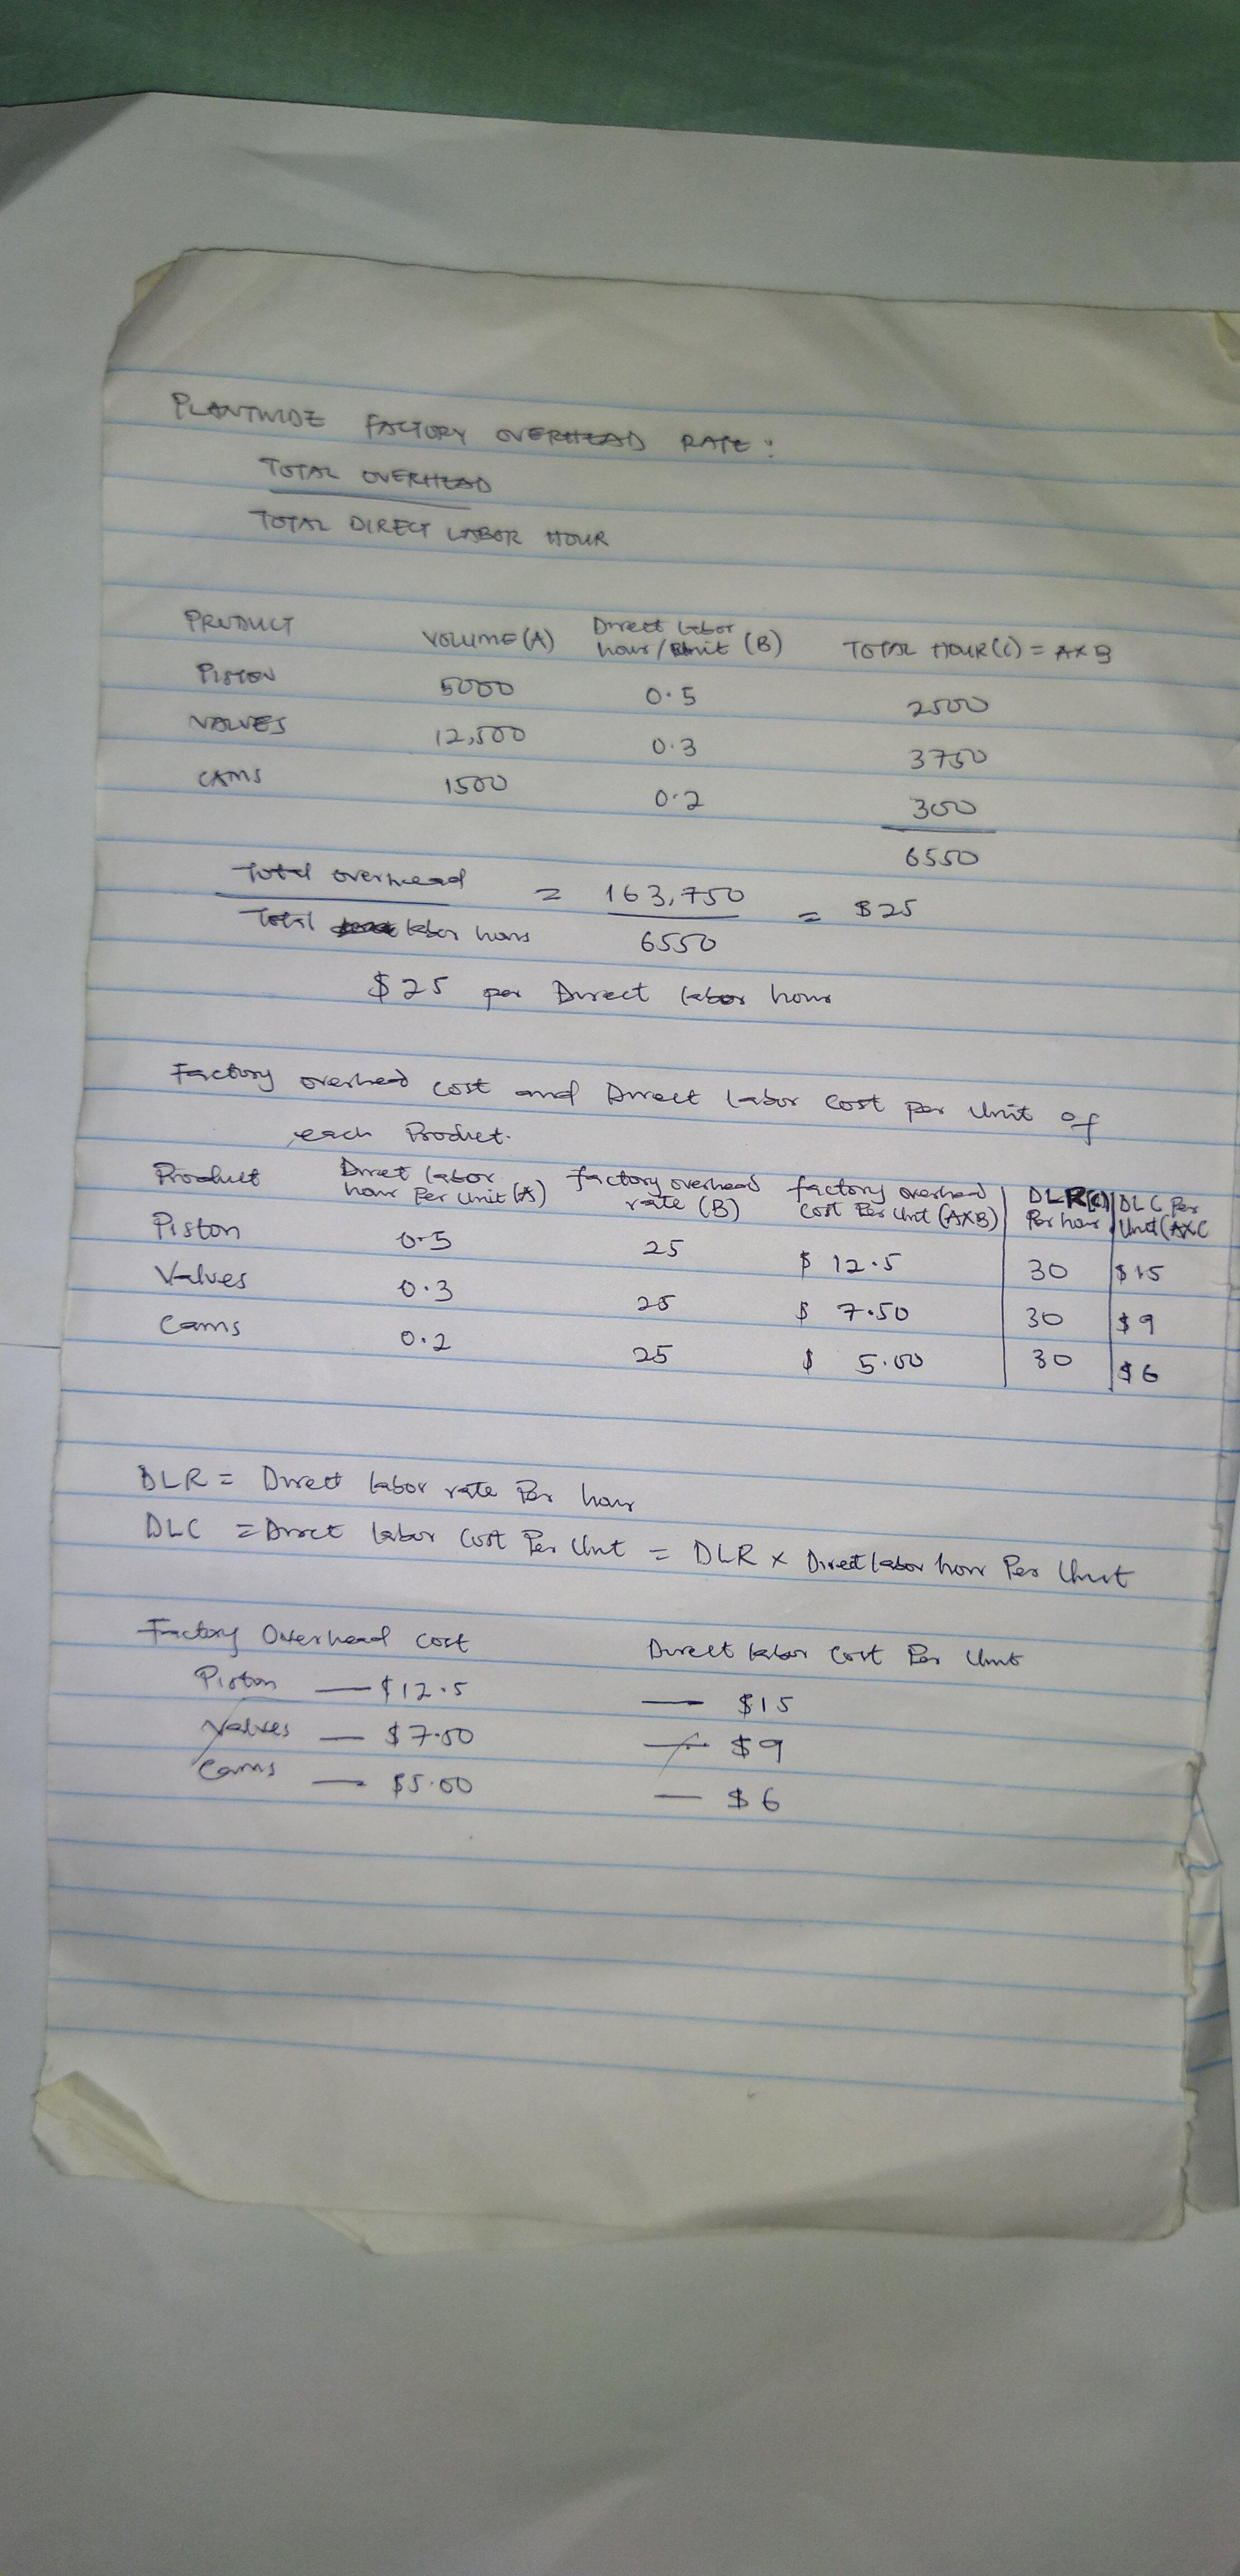 PLANTWIDE FACTORY OVERHEAD RATE:
TOTAL OVERHEAD
TOTAL DIRECT LABOR HOUR
PRODUCT VOLUME (A) Direct labor hour/Unit (B) TOTAL HOUR (C) = A X B
PISTON 5000 0.5 2500
VALVES 12,500 0.3 3750
CAMS 1500 0.2 300
6550
Total overhead = 163,750 = $25
Total labor hours 6550
$25 per Direct labor hour
Factory overhead cost and Direct labor cost per Unit of
each Product.
Product Direct labor hour Per Unit (A) factory overhead rate (B) factory overhead cost Per Unit (AXB) DLR(C) Per hour DLC Per Unit (AXC
Piston 0.5 25 $ 12.5 30 $15
Valves 0.3 25 $ 7.50 30 $9
Cams 0.2 25 $ 5.00 30 $6
DLR = Direct labor rate Per hour
DLC = Direct labor Cost Per Unit = DLR x Direct labor hour Per Unit
Factory Overhead cost Direct labor cost Per Unit
Piston — $12.5 — $15
Valves — $7.50 — $9
Cams — $5.00 — $6